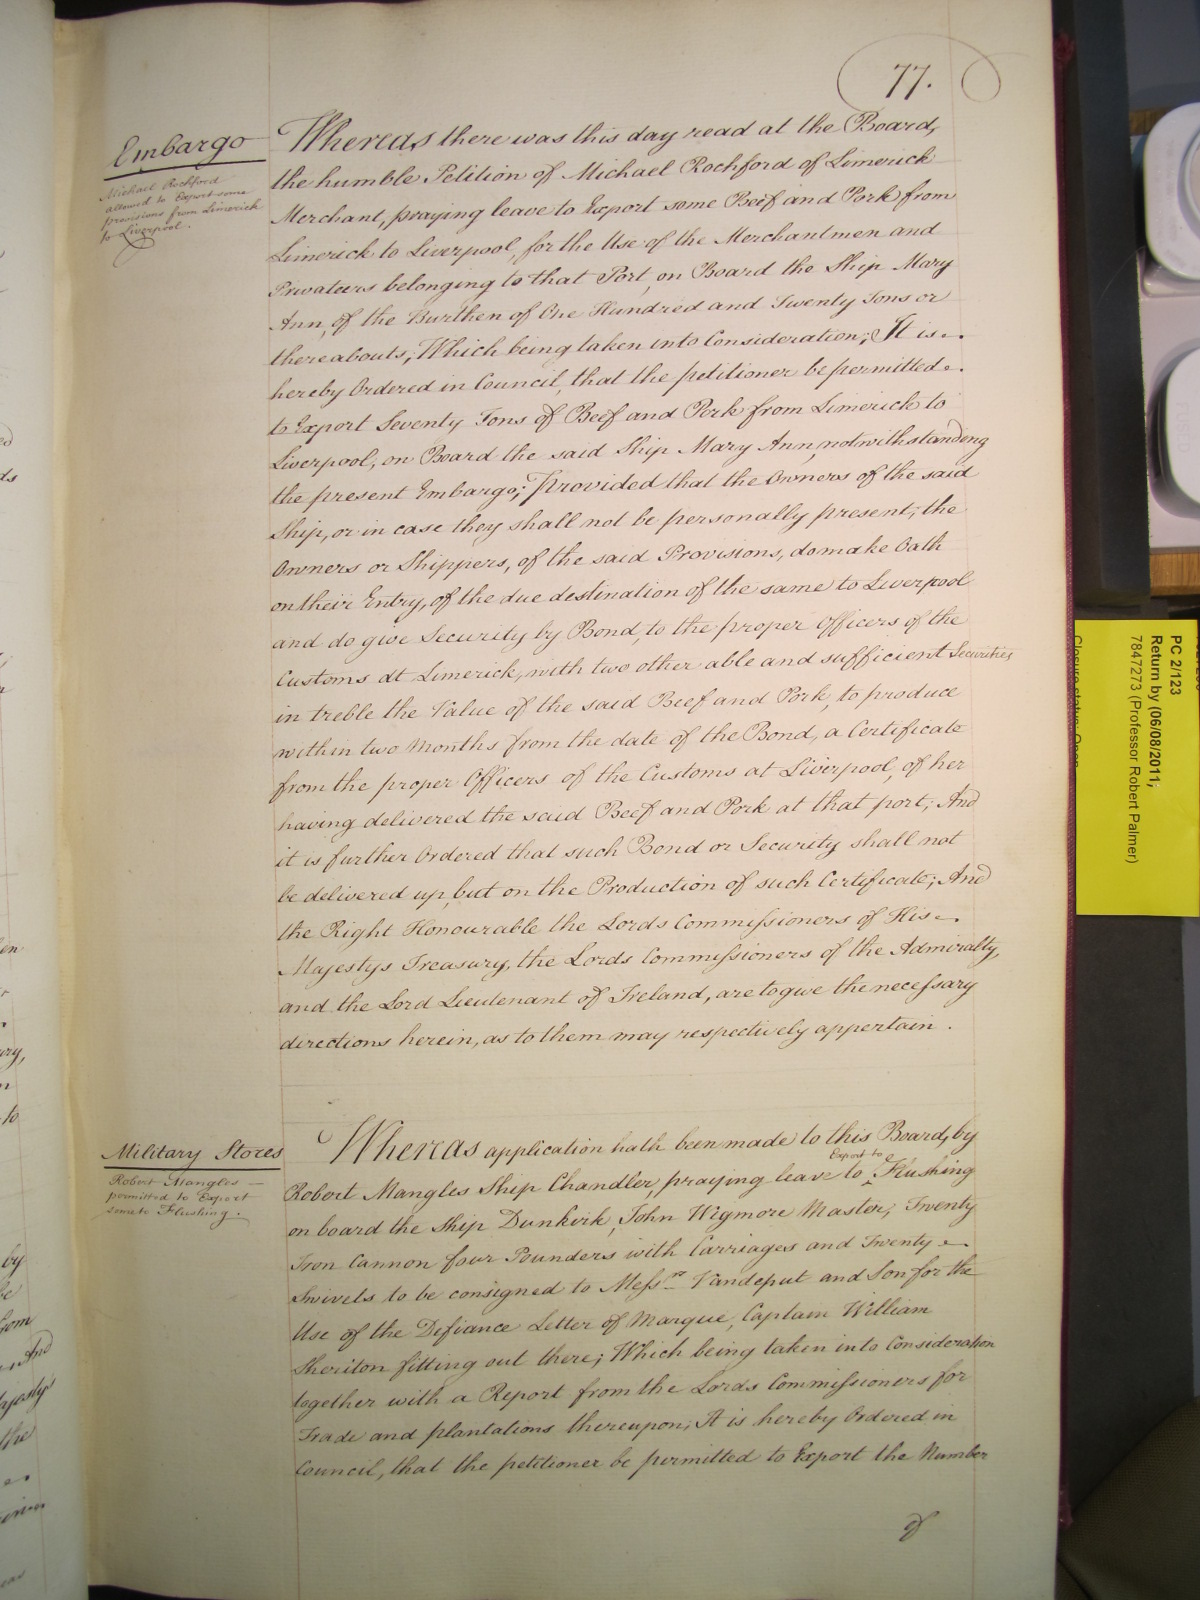 77.
Embargo
Michael Rochford
allowed to Export some
provisions from Limerick
to Liverpool.
Whereas there was this day read at the Board,
the humble Petition of Michael Rochford of Limerick
Merchant, praying leave to Export some Beef and Pork from
Limerick to Liverpool, for the Use of the Merchantmen and
Privateers belonging to that Port, on Board the Ship Mary
Ann, of the Burthen of One Hundred and Twenty Tons or
thereabouts; Which being taken into Consideration; It is
hereby Ordered in Council, that the petitioner be permitted
to Export Seventy Tons of Beef and Pork from Limerick to
Liverpool, on Board the said Ship Mary Ann, notwithstanding
the present Embargo; Provided that the Owners of the said
Ship, or in case they shall not be personally present, the
Owners or Shippers, of the said Provisions, do make Oath
on their Entry, of the due destination of the same to Liverpool
and do give Security by Bond, to the proper Officers of the
Customs at Limerick, with two other able and sufficient Securities
in treble the Value of the said Beef and Pork, to produce
within two Months from the date of the Bond, a Certificate
from the proper Officers of the Customs at Liverpool, of her
having delivered the said Beef and Pork at that port; And
it is further Ordered that such Bond or Security shall not
be delivered up, but on the Production of such Certificate; And
the Right Honourable the Lords Commissioners of His
Majestys Treasury, the Lords Commissioners of the Admiralty,
and the Lord Lieutenant of Ireland, are to give the necessary
directions herein, as to them may respectively appertain.
Military Stores
Robert Mangles
permitted to Export
some to Flushing.
Whereas application hath been made to this Board, by
Robert Mangles Ship Chandler, praying leave to ^Export to Flushing
on board the Ship Dunkirk, John Wigmore Master, Twenty
Iron Cannon four Pounders with Carriages and Twenty
Swivels to be consigned to Messrs. Vandeput and Son for the
Use of the Defiance Letter of Marque, Captain William
Sheriton fitting out there; Which being taken into Consideration
together with a Report from the Lords Commissioners for
Trade and plantations thereupon; It is hereby Ordered in
Council, that the petitioner be permitted to Export the Number
of
PC 2/123
Return by (06/08/2011;
7847273 (Professor Robert Palmer)